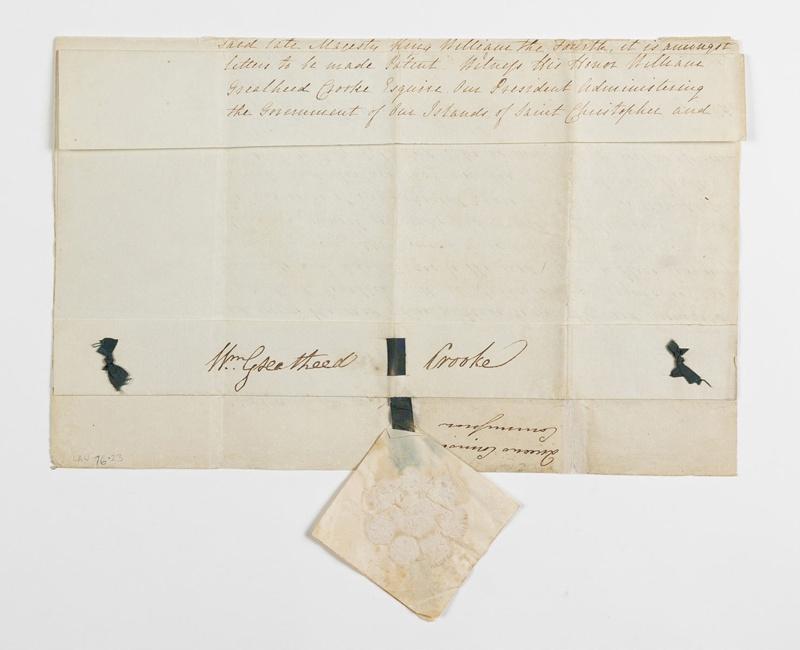 said late Majesty King William the Fourth, it is amongst
letters to be made Patent Witness His Honor William
Greatheed Crooke Esquire Our President Administering
the Government of Our Islands of Saint Christopher and
Wm. Greatheed Crooke
Commission
LAN 76-23